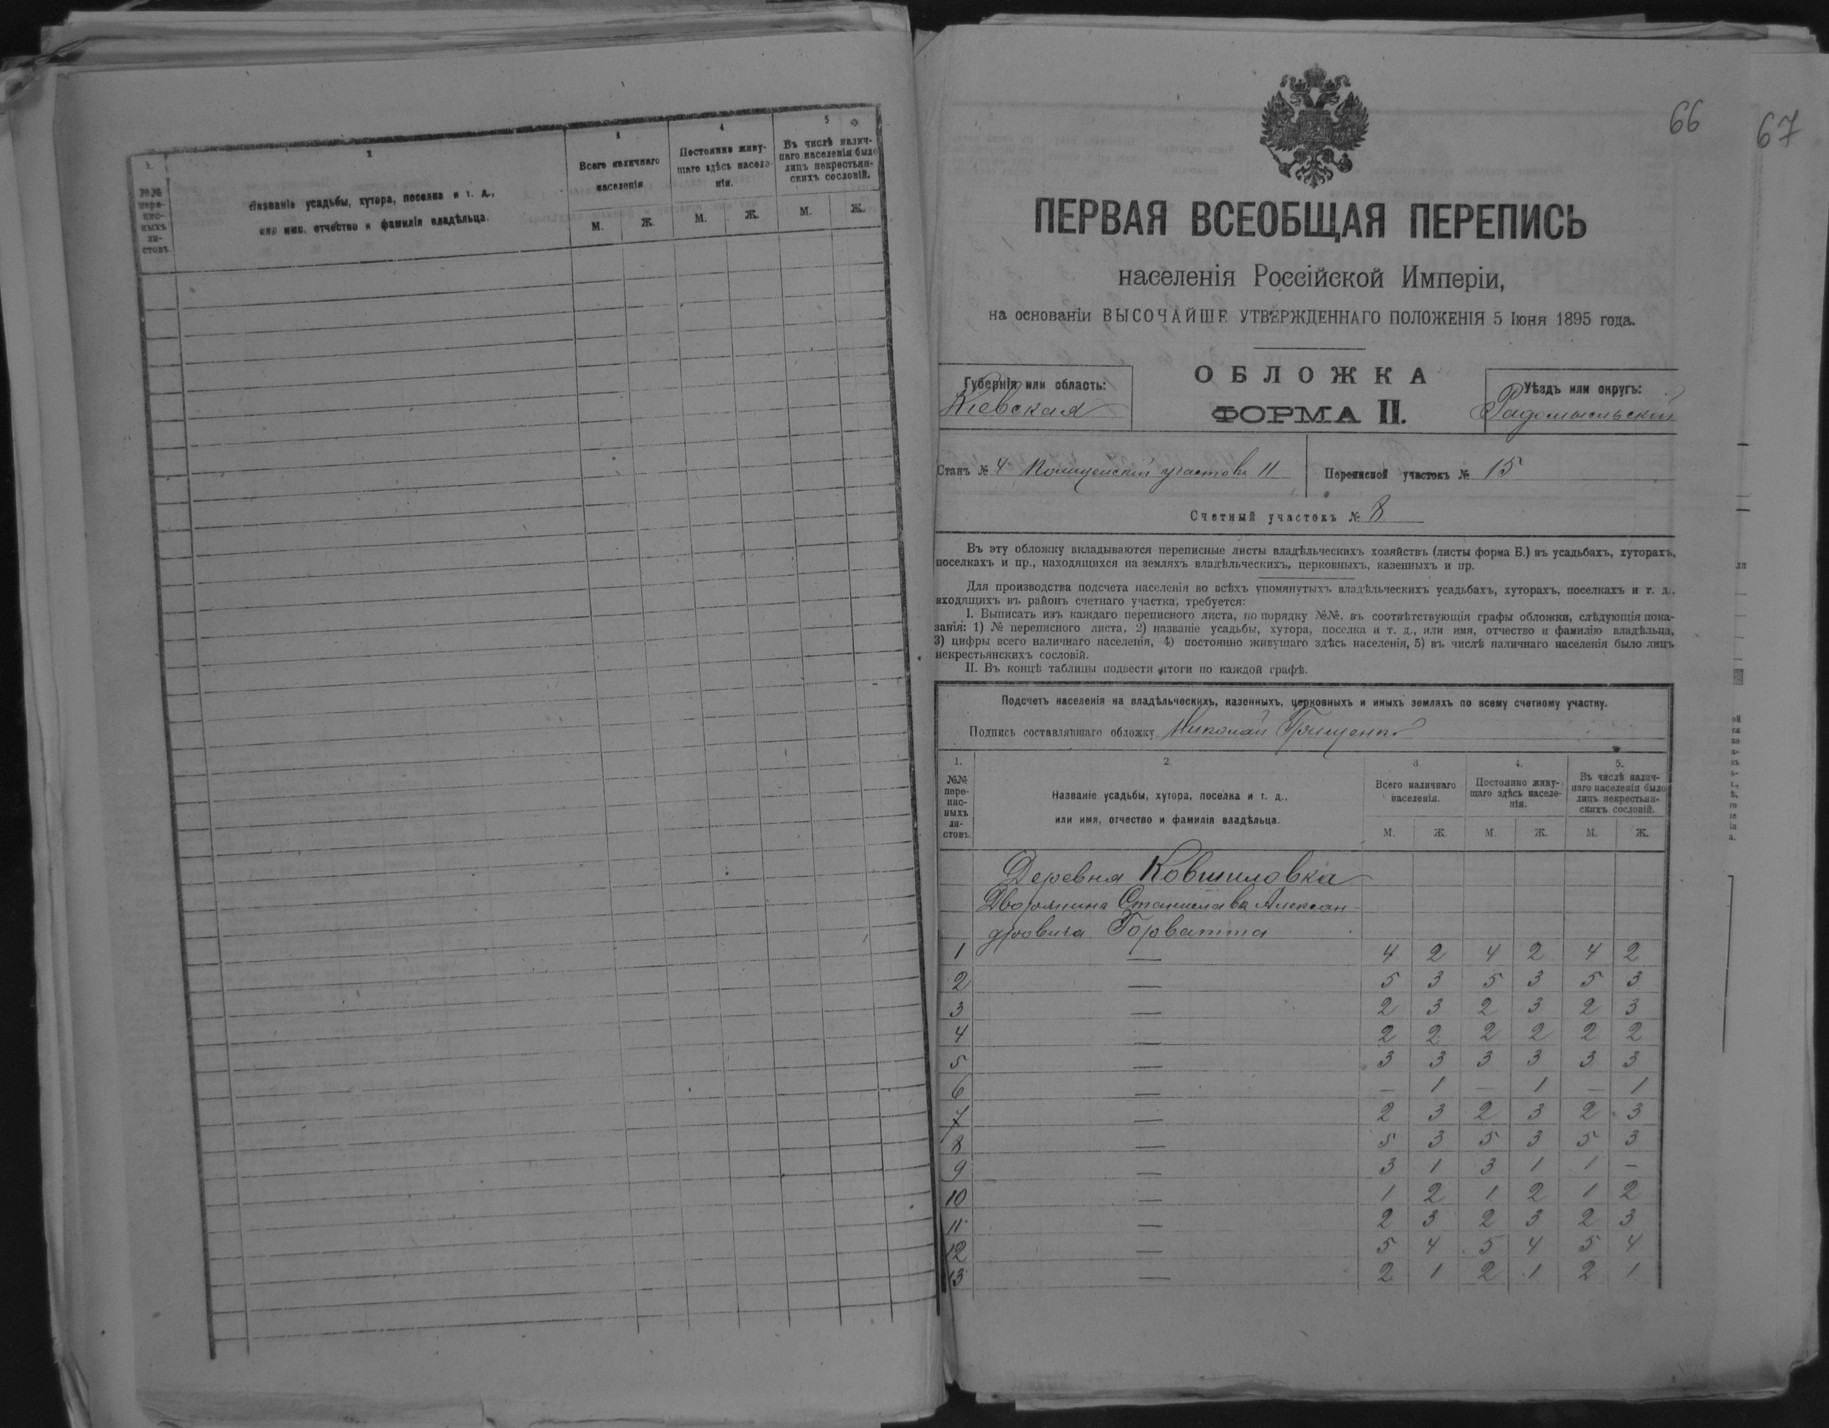 1.
2
3
4
5
№№ пере-
пис-
ныхъ
ли-
стовъ.
Названіе усадьбы, хутора, поселка и т. д.,
или имя, отчество и фамилія владѣльца.
Всего наличнаго
населенія
Постоянно живу-
щаго здѣсь населе-
нія.
Въ числѣ налич-
наго населенія было
лицъ некрестьян-
скихъ сословій.
М. Ж. М. Ж. М. Ж.
66 67
ПЕРВАЯ ВСЕОБЩАЯ ПЕРЕПИСЬ
населенія Россійской Имперіи,
на основаніи ВЫСОЧАЙШЕ УТВЕРЖДЕННАГО ПОЛОЖЕНІЯ 5 Іюня 1895 года.
Губернія или область:
Кіевская
ОБЛОЖКА
ФОРМА II.
Уѣздъ или округъ:
Радомысльскій
Станъ № 4 Полицейскій участокъ 11
Переписной участокъ № 15
Счетный участокъ № 8
Въ эту обложку вкладываются переписные листы владѣльческихъ хозяйствъ (листы форма Б.) въ усадьбахъ, хуторахъ,
поселкахъ и пр., находящихся на земляхъ владѣльческихъ, церковныхъ, казенныхъ и пр.
Для производства подсчета населенія во всѣхъ упомянутыхъ владѣльческихъ усадьбахъ, хуторахъ, поселкахъ и т. д.,
входящихъ въ районъ счетнаго участка, требуется:
I. Выписать изъ каждаго переписного листа, по порядку №№, въ соотвѣтствующія графы обложки, слѣдующія пока-
занія: 1) № переписного листа, 2) названіе усадьбы, хутора, поселка и т. д., или имя, отчество и фамилію владѣльца,
3) цифры всего наличнаго населенія, 4) постоянно живущаго здѣсь населенія, 5) въ числѣ наличнаго населенія было лицъ
некрестьянскихъ сословій.
II. Въ концѣ таблицы подвести итоги по каждой графѣ.
Подсчетъ населенія на владѣльческихъ, казенныхъ, церковныхъ и иныхъ земляхъ по всему счетному участку.
Подпись составлявшаго обложку Николай Грищенко
1.
2.
3.
4.
5.
№№
пере-
пис-
ныхъ
ли-
стовъ.
Названіе усадьбы, хутора, поселка и т. д.,
или имя, отчество и фамилія владѣльца.
Всего наличнаго
населенія.
Постоянно живу-
щаго здѣсь населе-
нія.
Въ числѣ налич-
наго населенія было
лицъ некрестьян-
скихъ сословій.
М. Ж. М. Ж. М. Ж.
Деревня Ковшиловка
Дворянина Станислава Алексан-
дровича Горватта
1 — 4 2 4 2 4 2
2 — 5 3 5 3 5 3
3 — 2 3 2 3 2 3
4 — 2 2 2 2 2 2
5 — 3 3 3 3 3 3
6 — — 1 — 1 — 1
7 — 2 3 2 3 2 3
8 — 5 3 5 3 5 3
9 — 3 1 3 1 1 —
10 — 1 2 1 2 1 2
11 — 2 3 2 3 2 3
12 — 5 4 5 4 5 4
13 — 2 1 2 1 2 1